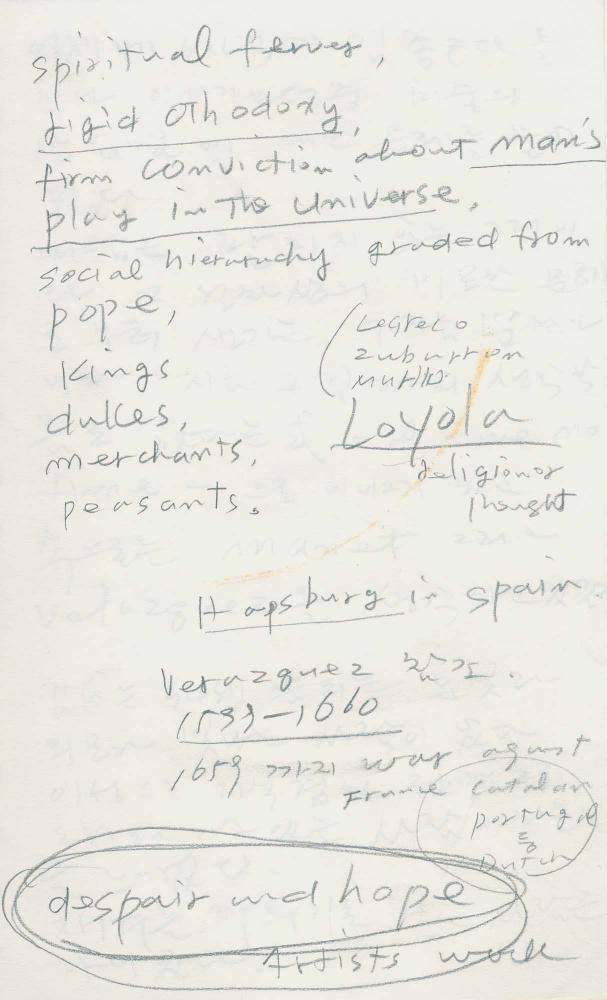 spiritual ferver,
rigid othodoxy,
firm conviction about man's
play in the universe,
social hierarachy graded from
pope,
Kings
dukes,
merchants,
peasants.
(Legreco
zuburron
murillo
Loyola
religionos
thought
Hapsburg in spain
Verazquez 참고.
1599-1660
1659 까지 war against
France Catalan
portugal
등
Dutch
despair and hope
Artists work